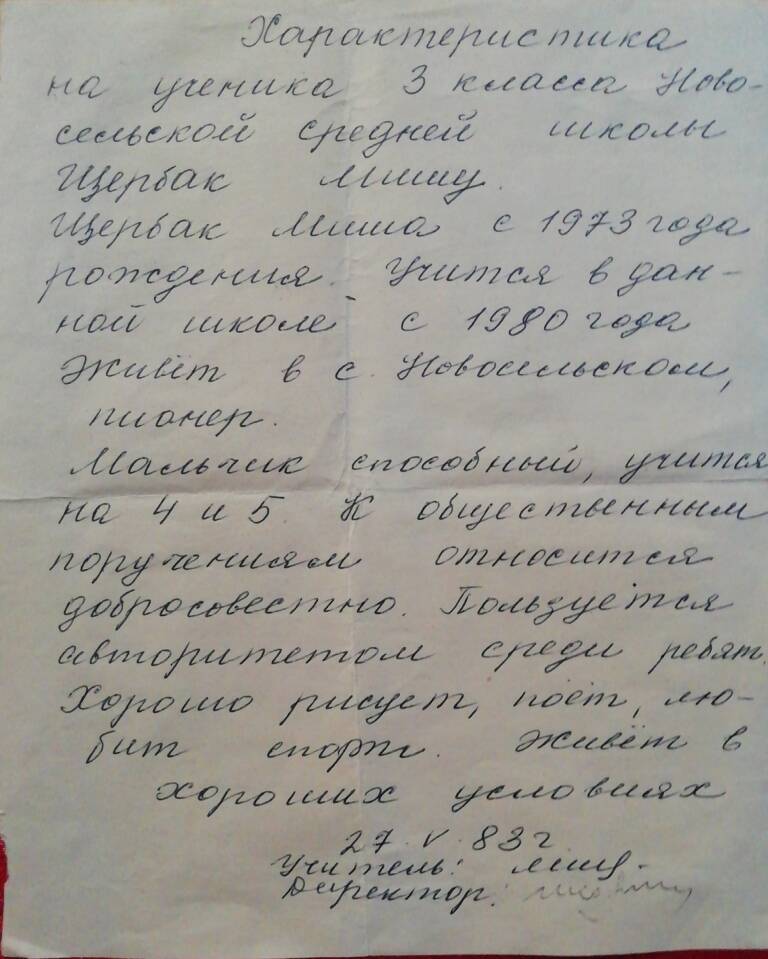 Характеристика
на ученика 3 класса Ново-
сельской средней школы
Щербак Мишу.
Щербак Миша с 1973 года
рождения. Учится в дан-
ной школе с 1980 года
Живёт в с. Новосельском,
пионер.
Мальчик способный, учится
на 4 и 5. К общественным
поручениям относится
добросовестно. Пользуется
авторитетом среди ребят.
Хорошо рисует, поёт, лю-
бит спорт. Живёт в
хороших условиях
27. V. 83 г
Учитель:
Директор: